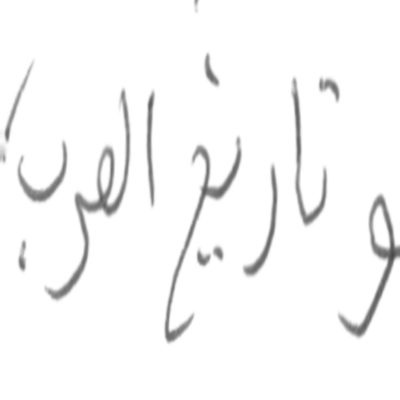 وتاريخ العرب!